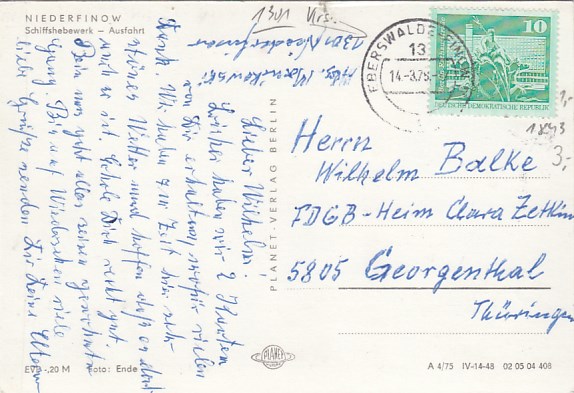 NIEDERFINOW
Schiffshebewerk – Ausfahrt
1301 Nieder
Lieber Wilhelm!
Leider haben wir 2 Karten
von Dir erhalten, wofür vielen
Dank. Wir haben z. Zeit hier sehr
schönes Wetter und hoffen daß es dort
auch so ist. Erhole Dich recht gut.
Bei uns geht alles seinen gewohnten
Gang. Bis auf Wiedersehen viele
liebe Grüße senden Dir Deine Eltern
PLANET-VERLAG BERLIN
EBERSWALDE-FINOW
13
14.-3.75
10
DEUTSCHE DEMOKRATISCHE REPUBLIK
1893
3,-
Herrn
Wilhelm Balke
FDGB-Heim Clara Zetkin
5805 Georgenthal
Thüringen
PLANET
EVP -,20 M Foto: Ende
A 4/75 IV-14-48 02 05 04 408